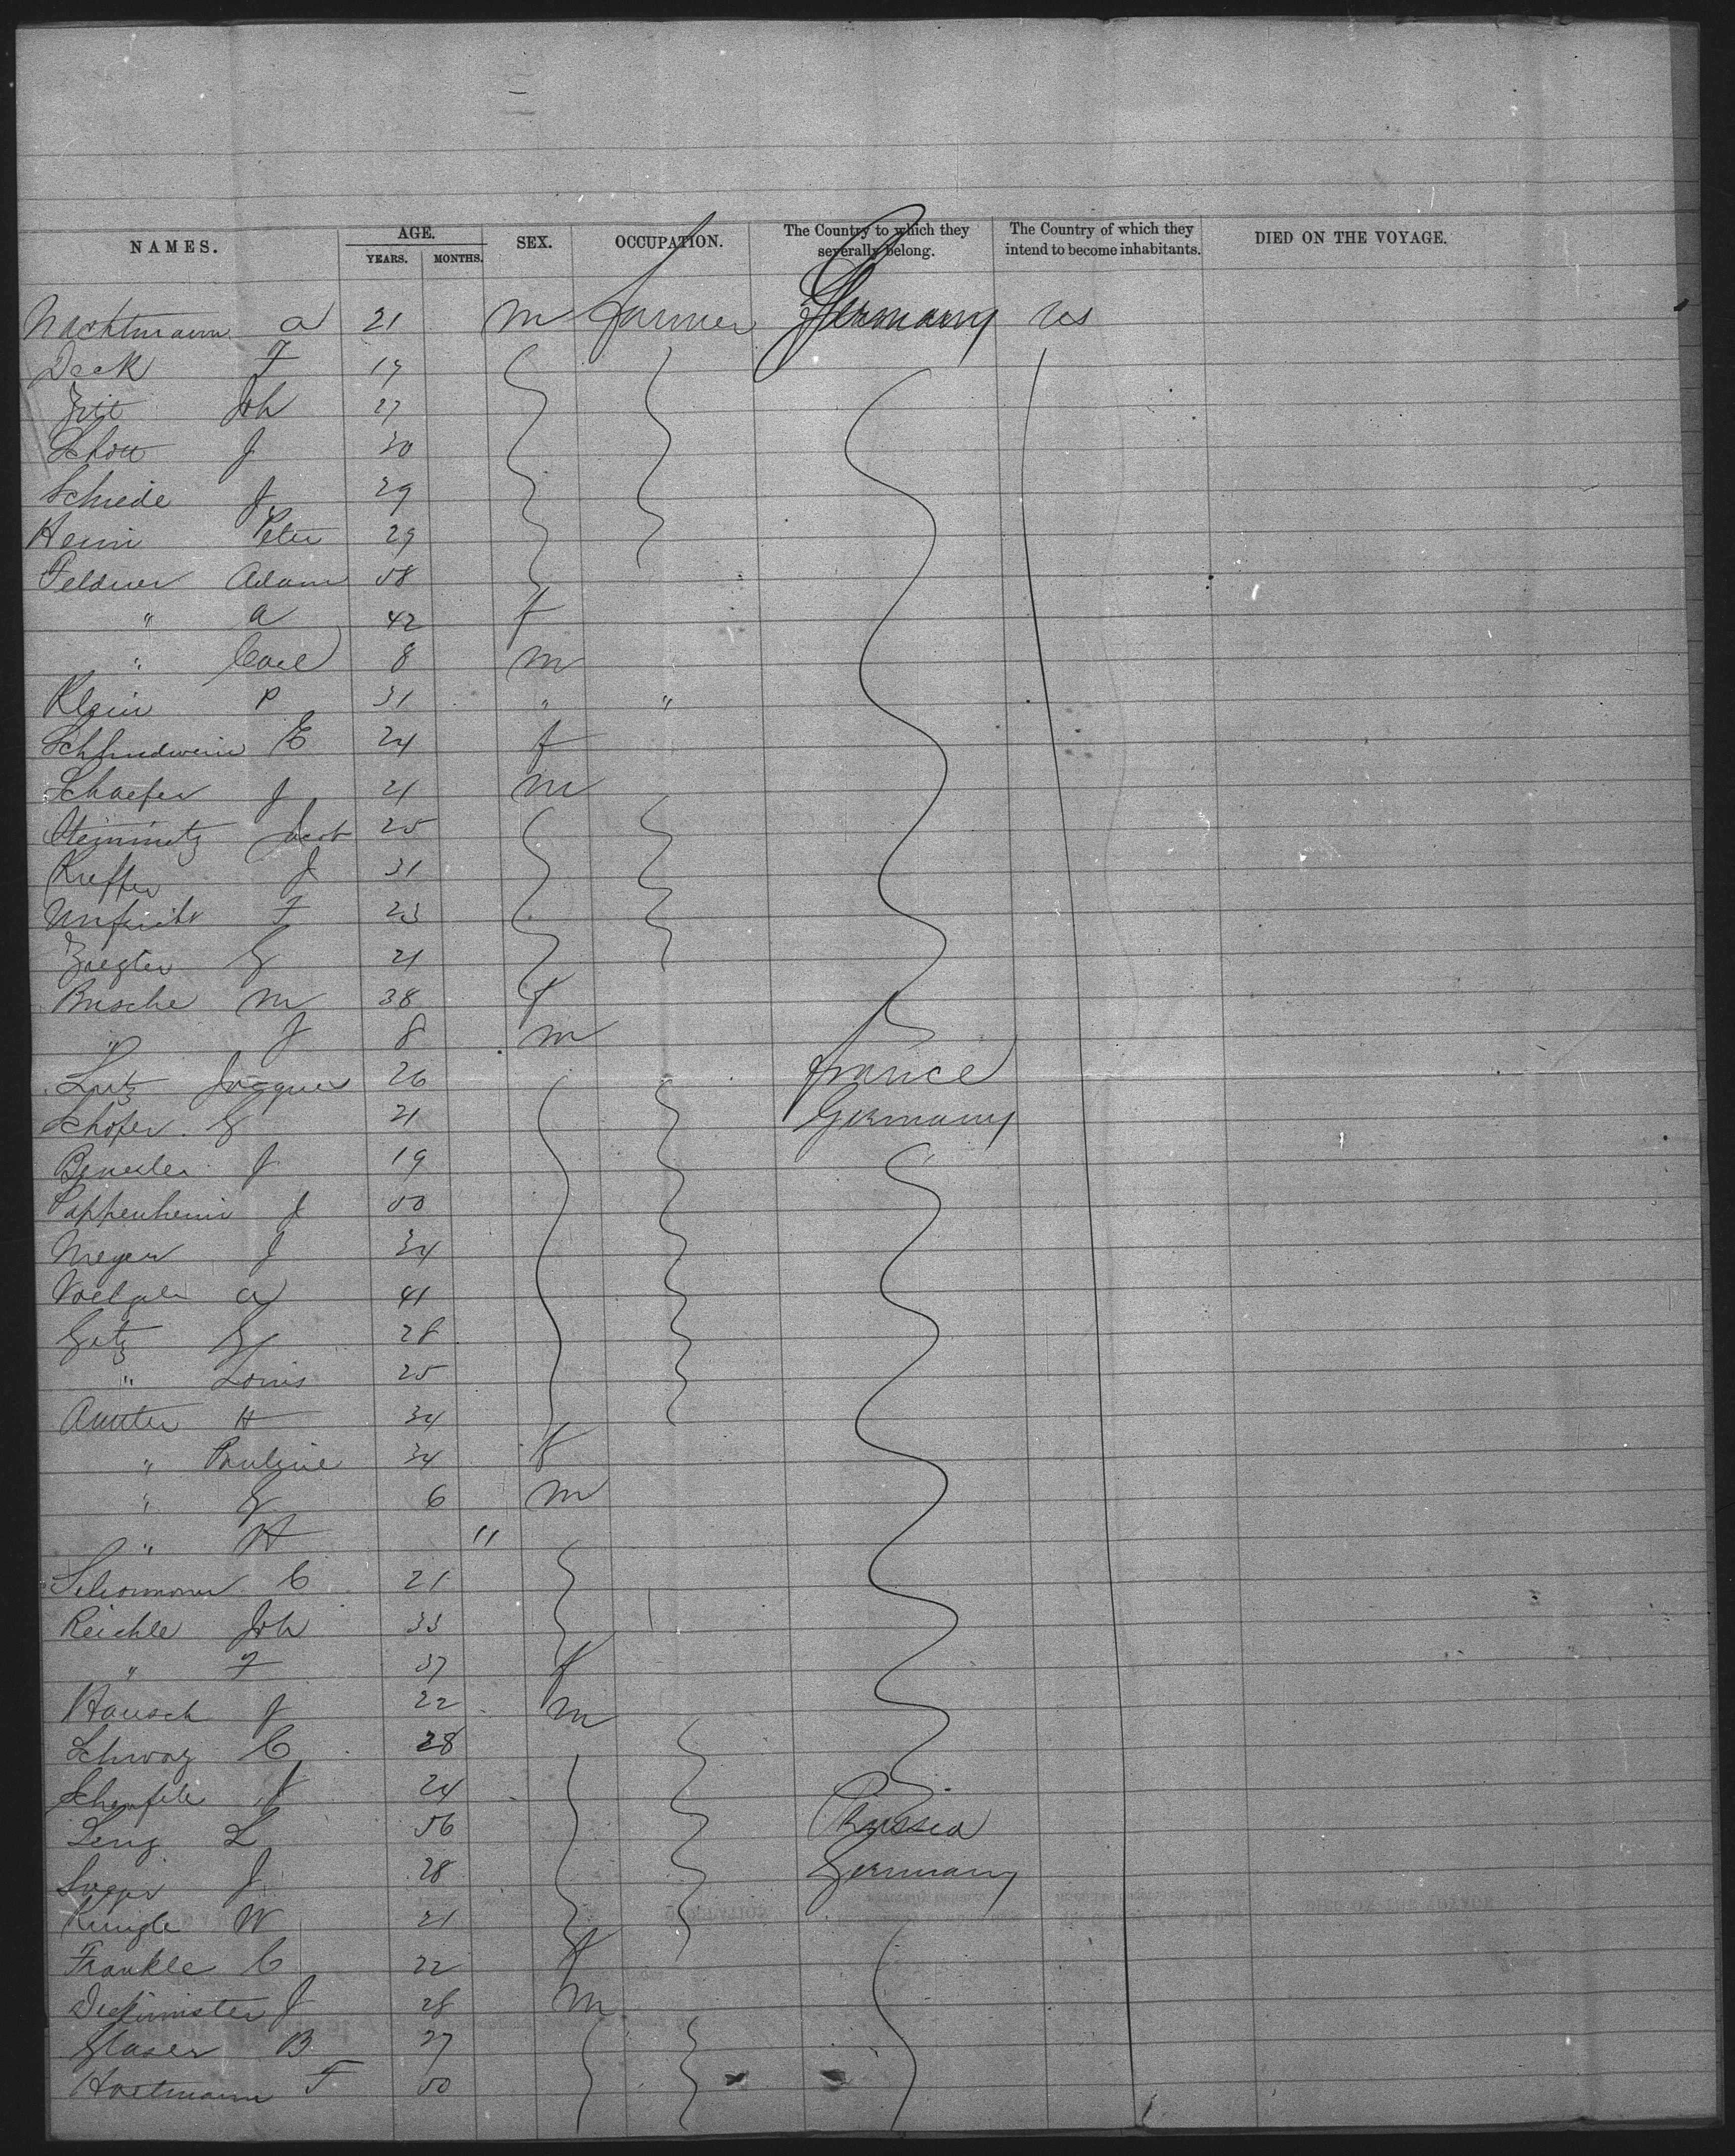 NAMES. AGE. SEX. OCCUPATION. The Country to which they severally belong. The Country of which they intend to become inhabitants. DIED ON THE VOYAGE.
YEARS. MONTHS.
Nachtmann A 21 m farmer Germany US
Deck F 19
Joh 27
Schou J 30
Schiede J 29
Heim Peter 29
Feldner Adam 58
" A 42 f
" Carl 8 m
Klein P 31 " "
Schlindwein E 24 f
Schaefer J 21 m
Steinmetz Jacob 25
Kieffer J 31
F 23
Ziegler G 21
Busche M 38 f
" J 8 m
Lutz Jacques 26 France
Schofer G 21 Germany
J 19
Pappenheim J 50
Meyer J 34
A 41
Getz G 28
" Louis 25
H 34
" Pauline 34 f
" G 6 m
" H 11
C 21
Reichle Joh 33
" F 37 f
Hausch J 22 m
Schwarz C 28
J 24
L 56 Russia
J 28 Germany
W 21
Frankle C 22 f
J 28 m
Glaser B 27
Hartmann F 50